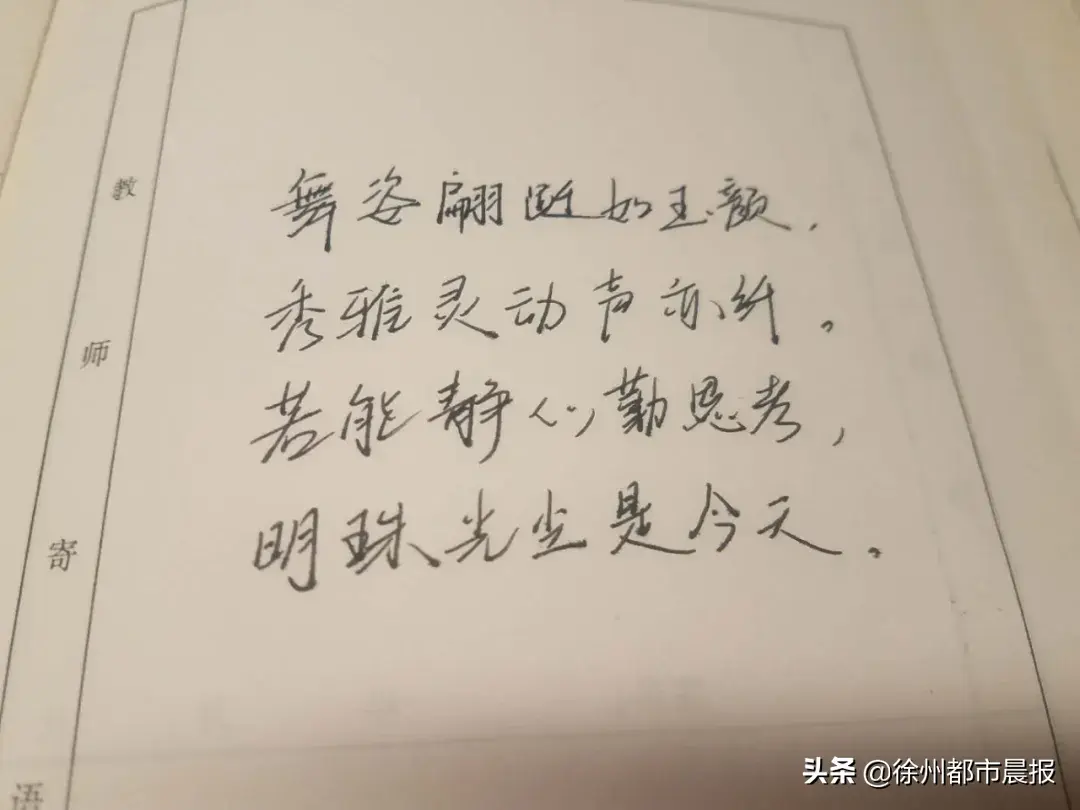 教师寄语
舞姿翩跹如玉颜,
秀雅灵动声亦纤。
若能静心勤思考,
明珠光尘是今天。
头条 @徐州都市晨报